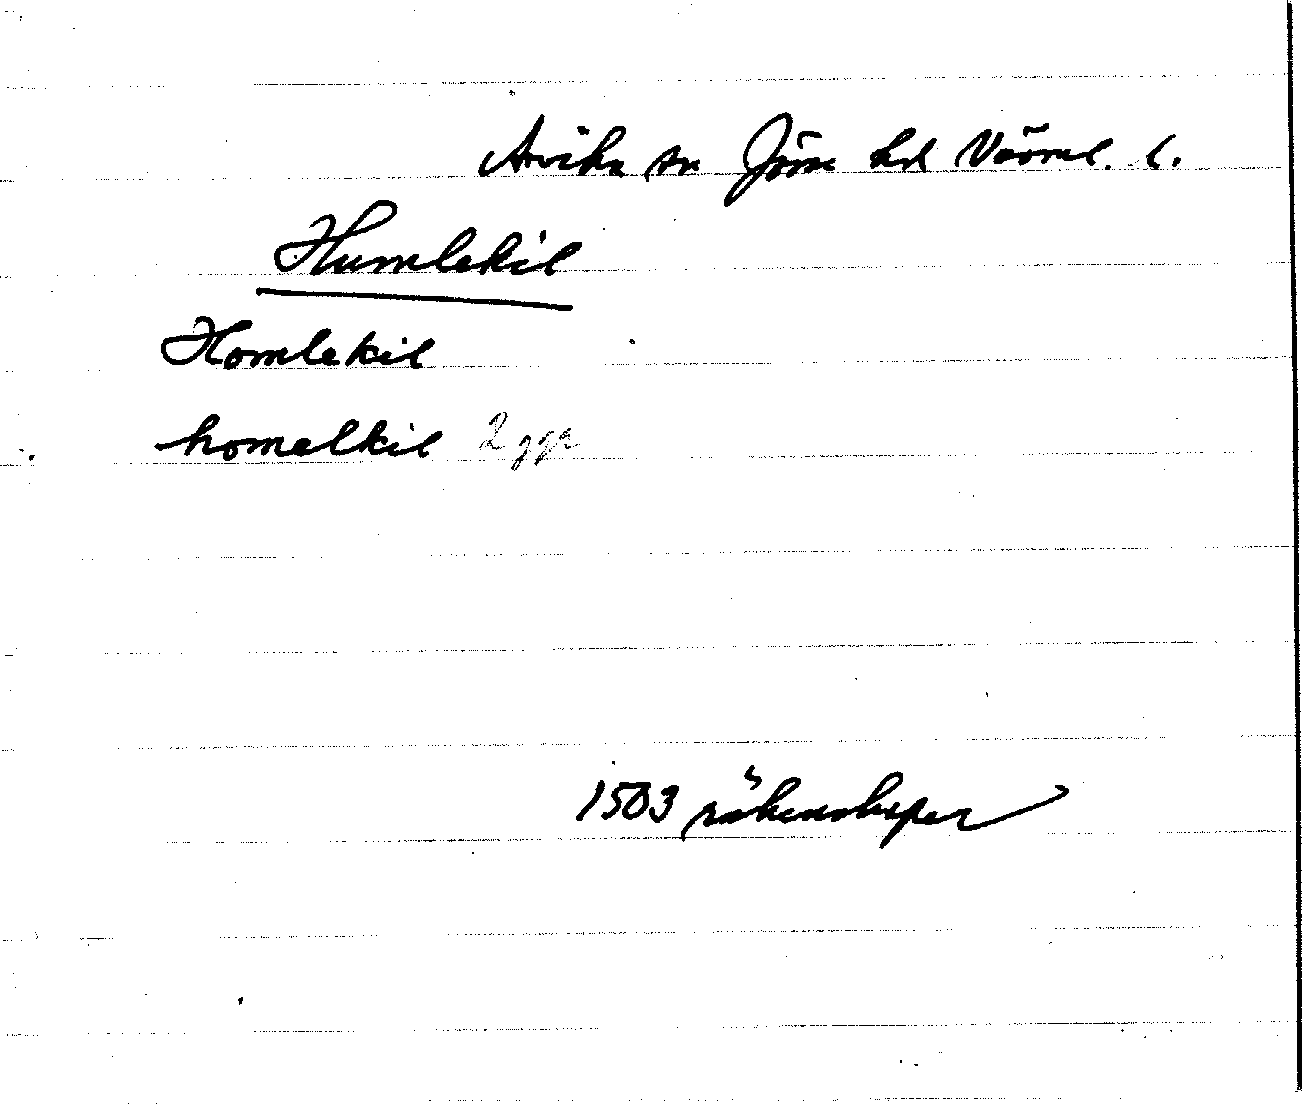 Arvika sn Jösse hd Värml. l.
Humlekil
Homlekil
homelkil 2 ggr
1503 räkenskaper